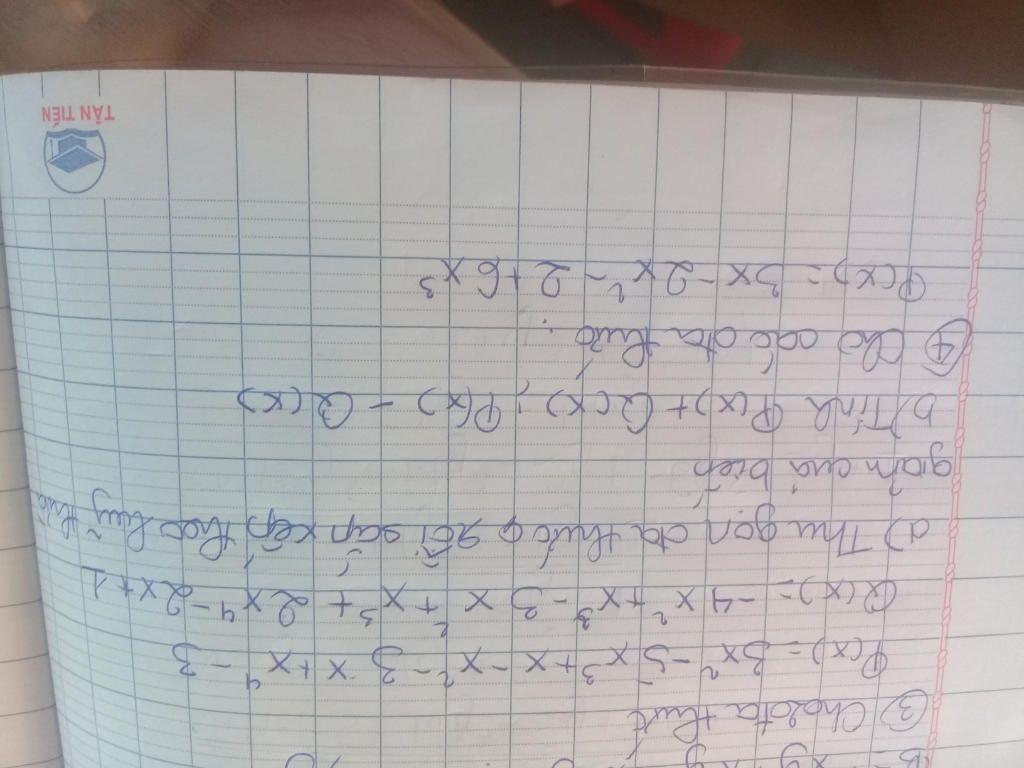 ③ Cho 2 đa thức
P(x) = 3x² - 5x³ + x - x² - 3x + x⁴ - 3
Q(x) = -4x² + x³ - 3x + x² + x³ + 2x⁴ - 2x + 1
a) Thu gọn đa thức rồi sắp xếp theo luỹ thừa
giảm của biến
b) Tính P(x) + Q(x) ; P(x) - Q(x)
④ Cho các đa thức :
P(x) = 3x - 2x² - 2 + 6x³
TÂN TIẾN